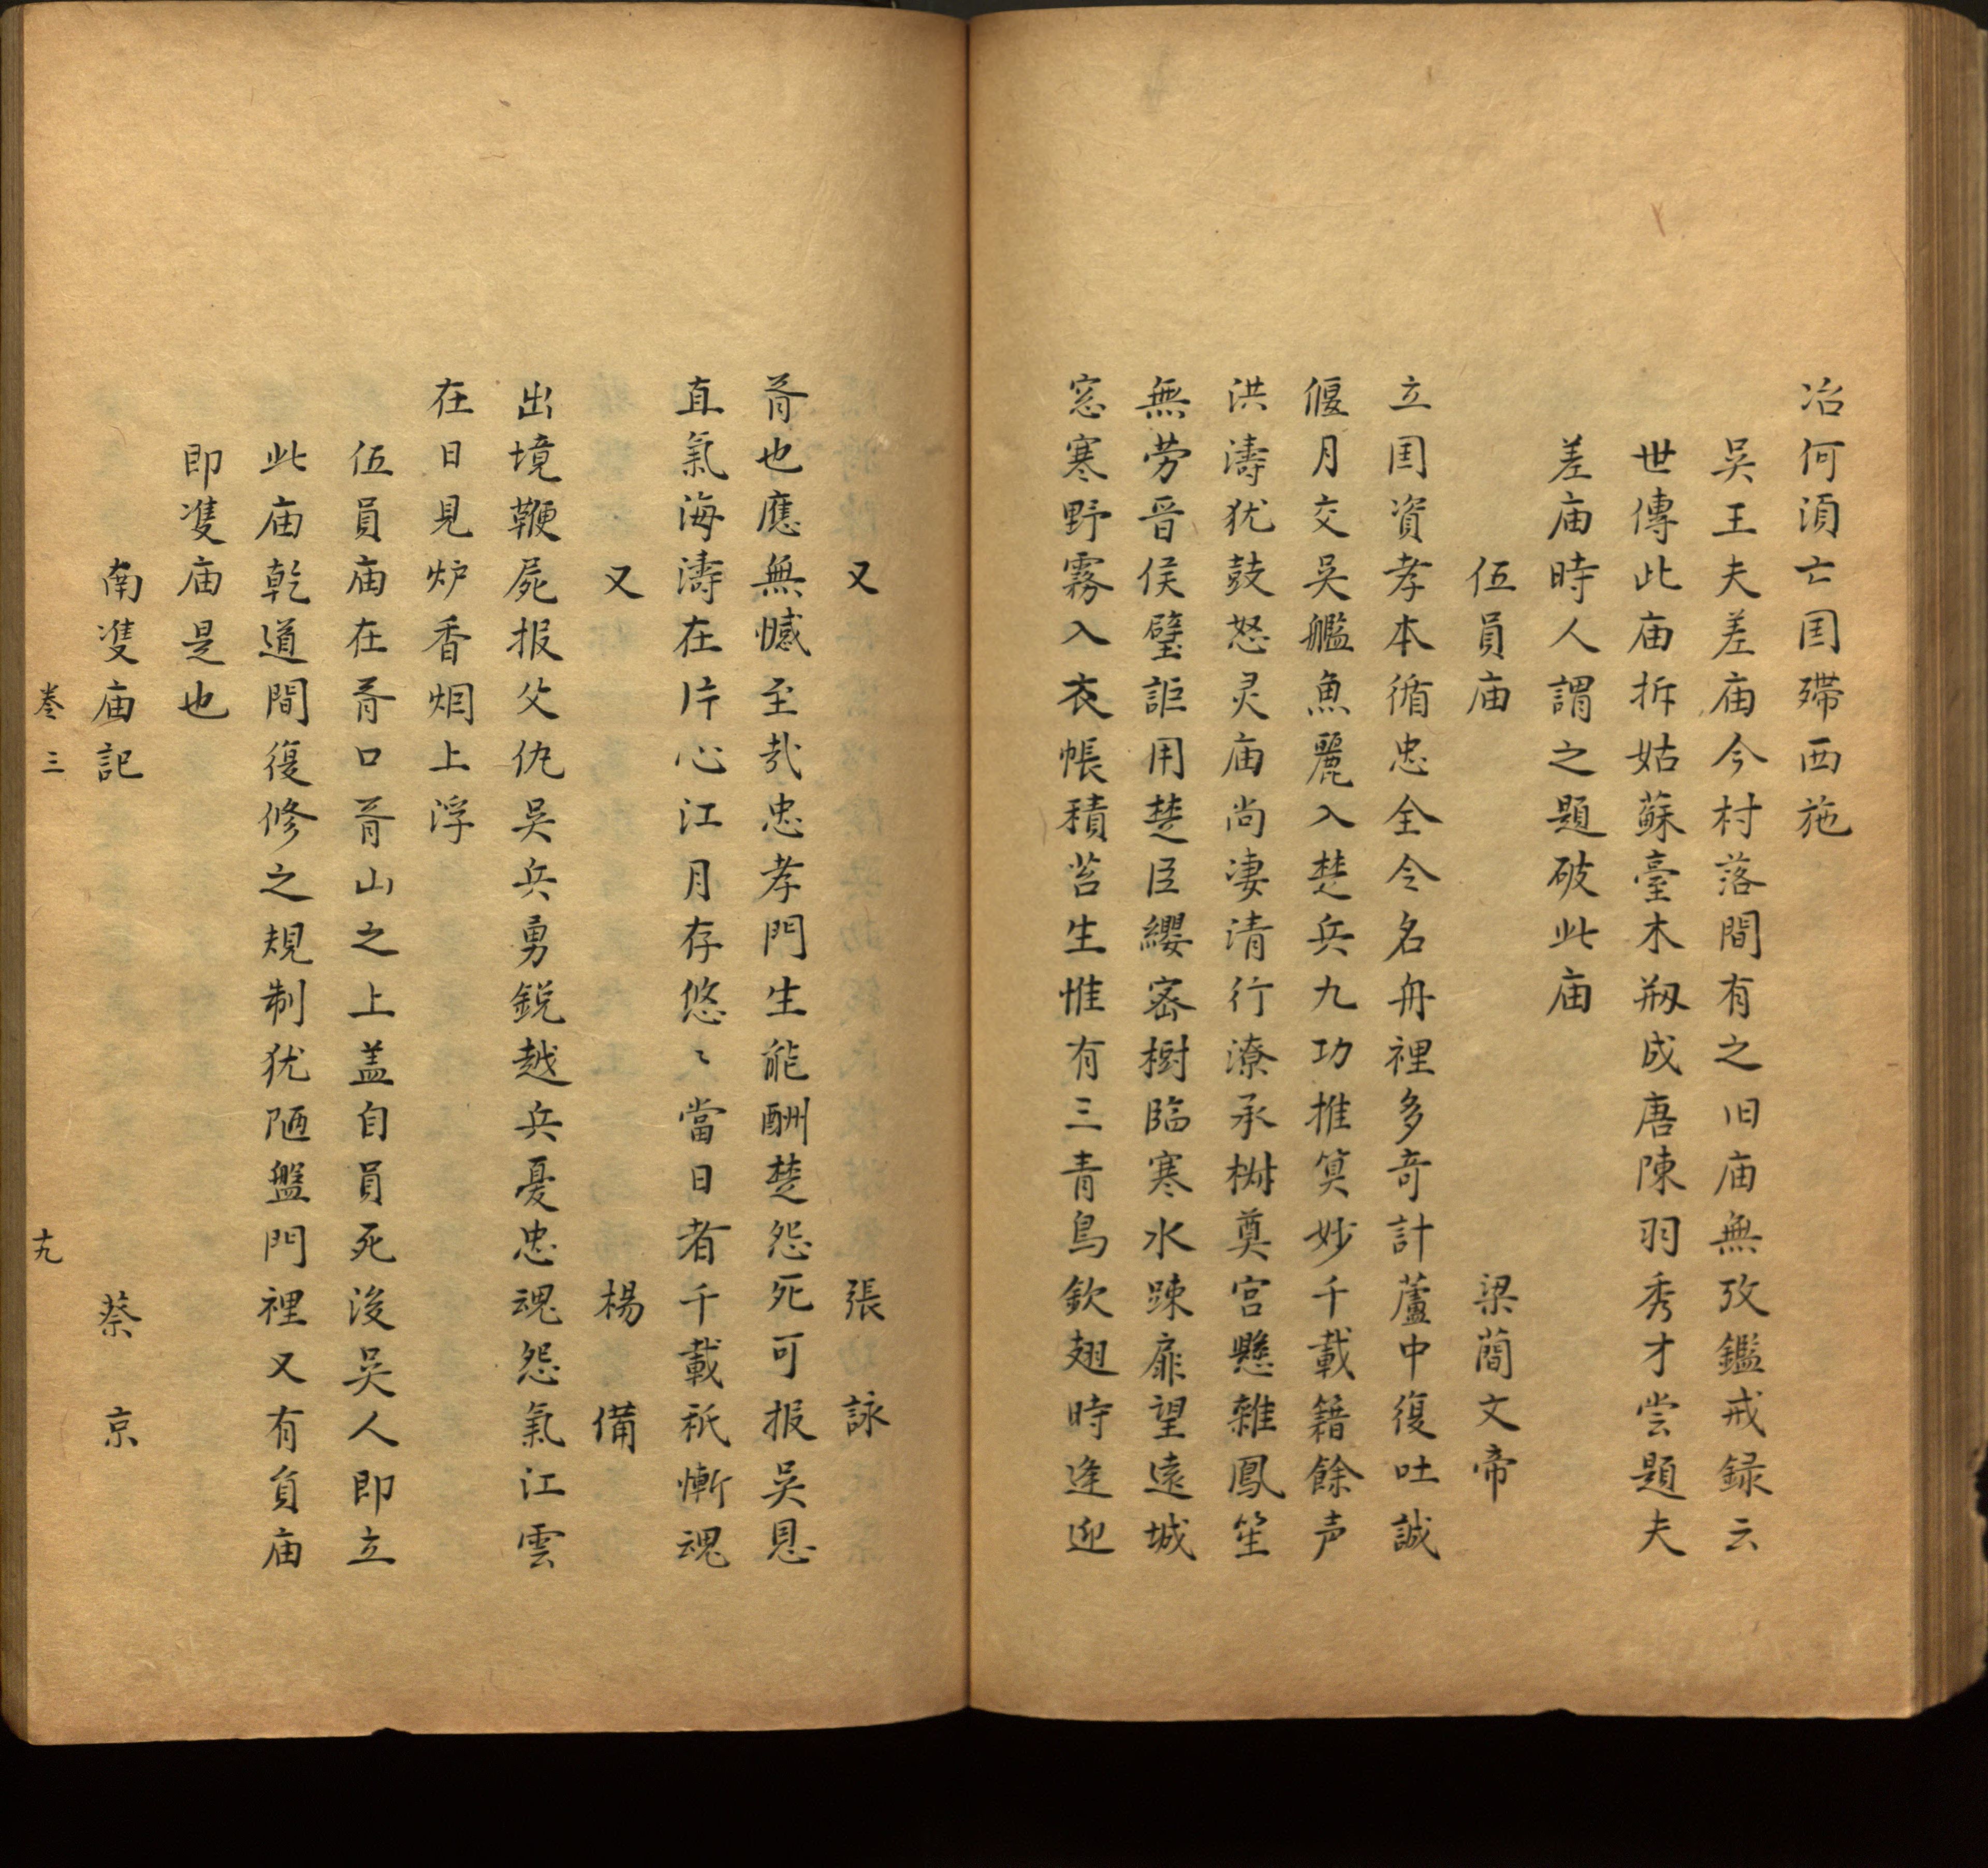 冶何湏亡囯殢西施
吳王夫差庙今村落間有之旧庙無攷鑑戒録云
世傳此庙拆姑蘇臺木剏成唐陳羽秀才尝題夫
差庙時人謂之題破此庙
伍員庙 梁蕳文帝
立囯資孝本循忠全令名舟裡多竒計蘆中復吐誠
偃月交吳艦魚麗入楚兵九功推筭妙千載籍餘声
洪濤犹鼓怒灵庙尚凄清行潦承椒奠宫懸雜鳳笙
無劳晋侯璧詎用楚臣纓密樹臨寒水踈扉望遠城
窓寒野霧入衣帳積苔生惟有三青鳥欽翅時逢迎
又 張詠
胥也應無憾至㢤忠孝門生能酬楚怨死可报吳恩
直氣海濤在片心江月存悠〻當日者千載祇慚魂
又 楊備
出境鞭屍报父仇吳兵勇銳越兵憂忠魂怨氣江雲
在日見炉香烟上浮
伍員庙在胥口胥山之上盖自員死後吳人即立
此庙乾道間復修之規制犹陋盤門裡又有負庙
即䨇庙是也
南䨇庙記 蔡京
卷三 十九